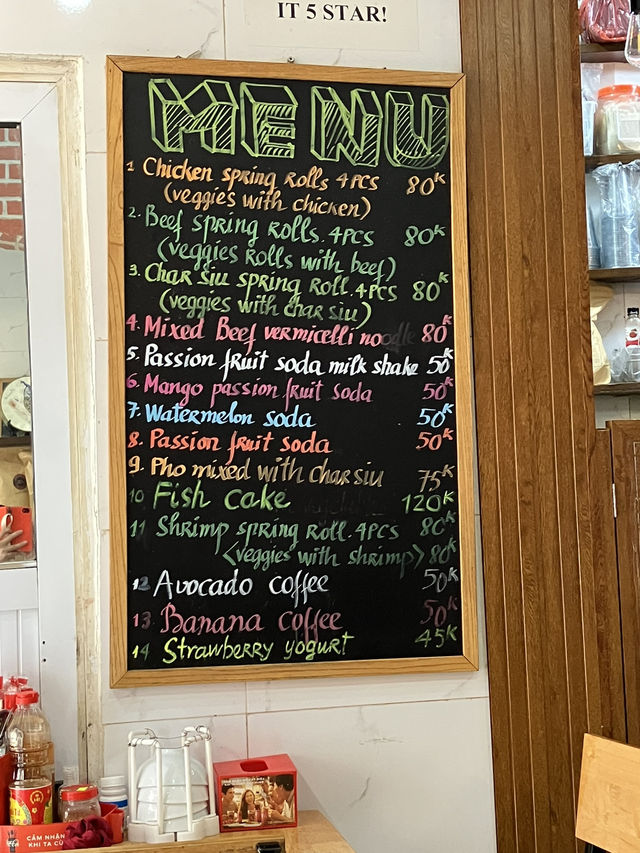 IT 5 STAR!
MENU
1 Chicken spring Rolls 4PCS 80K
(veggies with chicken)
2. Beef spring Rolls. 4PCS 80K
(veggies Rolls with beef)
3. Char Siu spring Roll. 4PCS 80K
(veggies with char siu)
4. Mixed Beef vermicelli noodle 80K
5. Passion fruit soda milk shake 50K
6. Mango passion fruit soda 50K
7. Watermelon soda 50K
8. Passion fruit soda 50K
9. Pho mixed with char siu 75K
10 Fish cake 120K
11 Shrimp spring Roll. 4PCS 80K
<veggies with shrimp> 80K
12 Avocado coffee 50K
13. Banana coffee 50K
14 Strawberry yogurt 45K
CẢM NHẬN
KHI TA CÙ